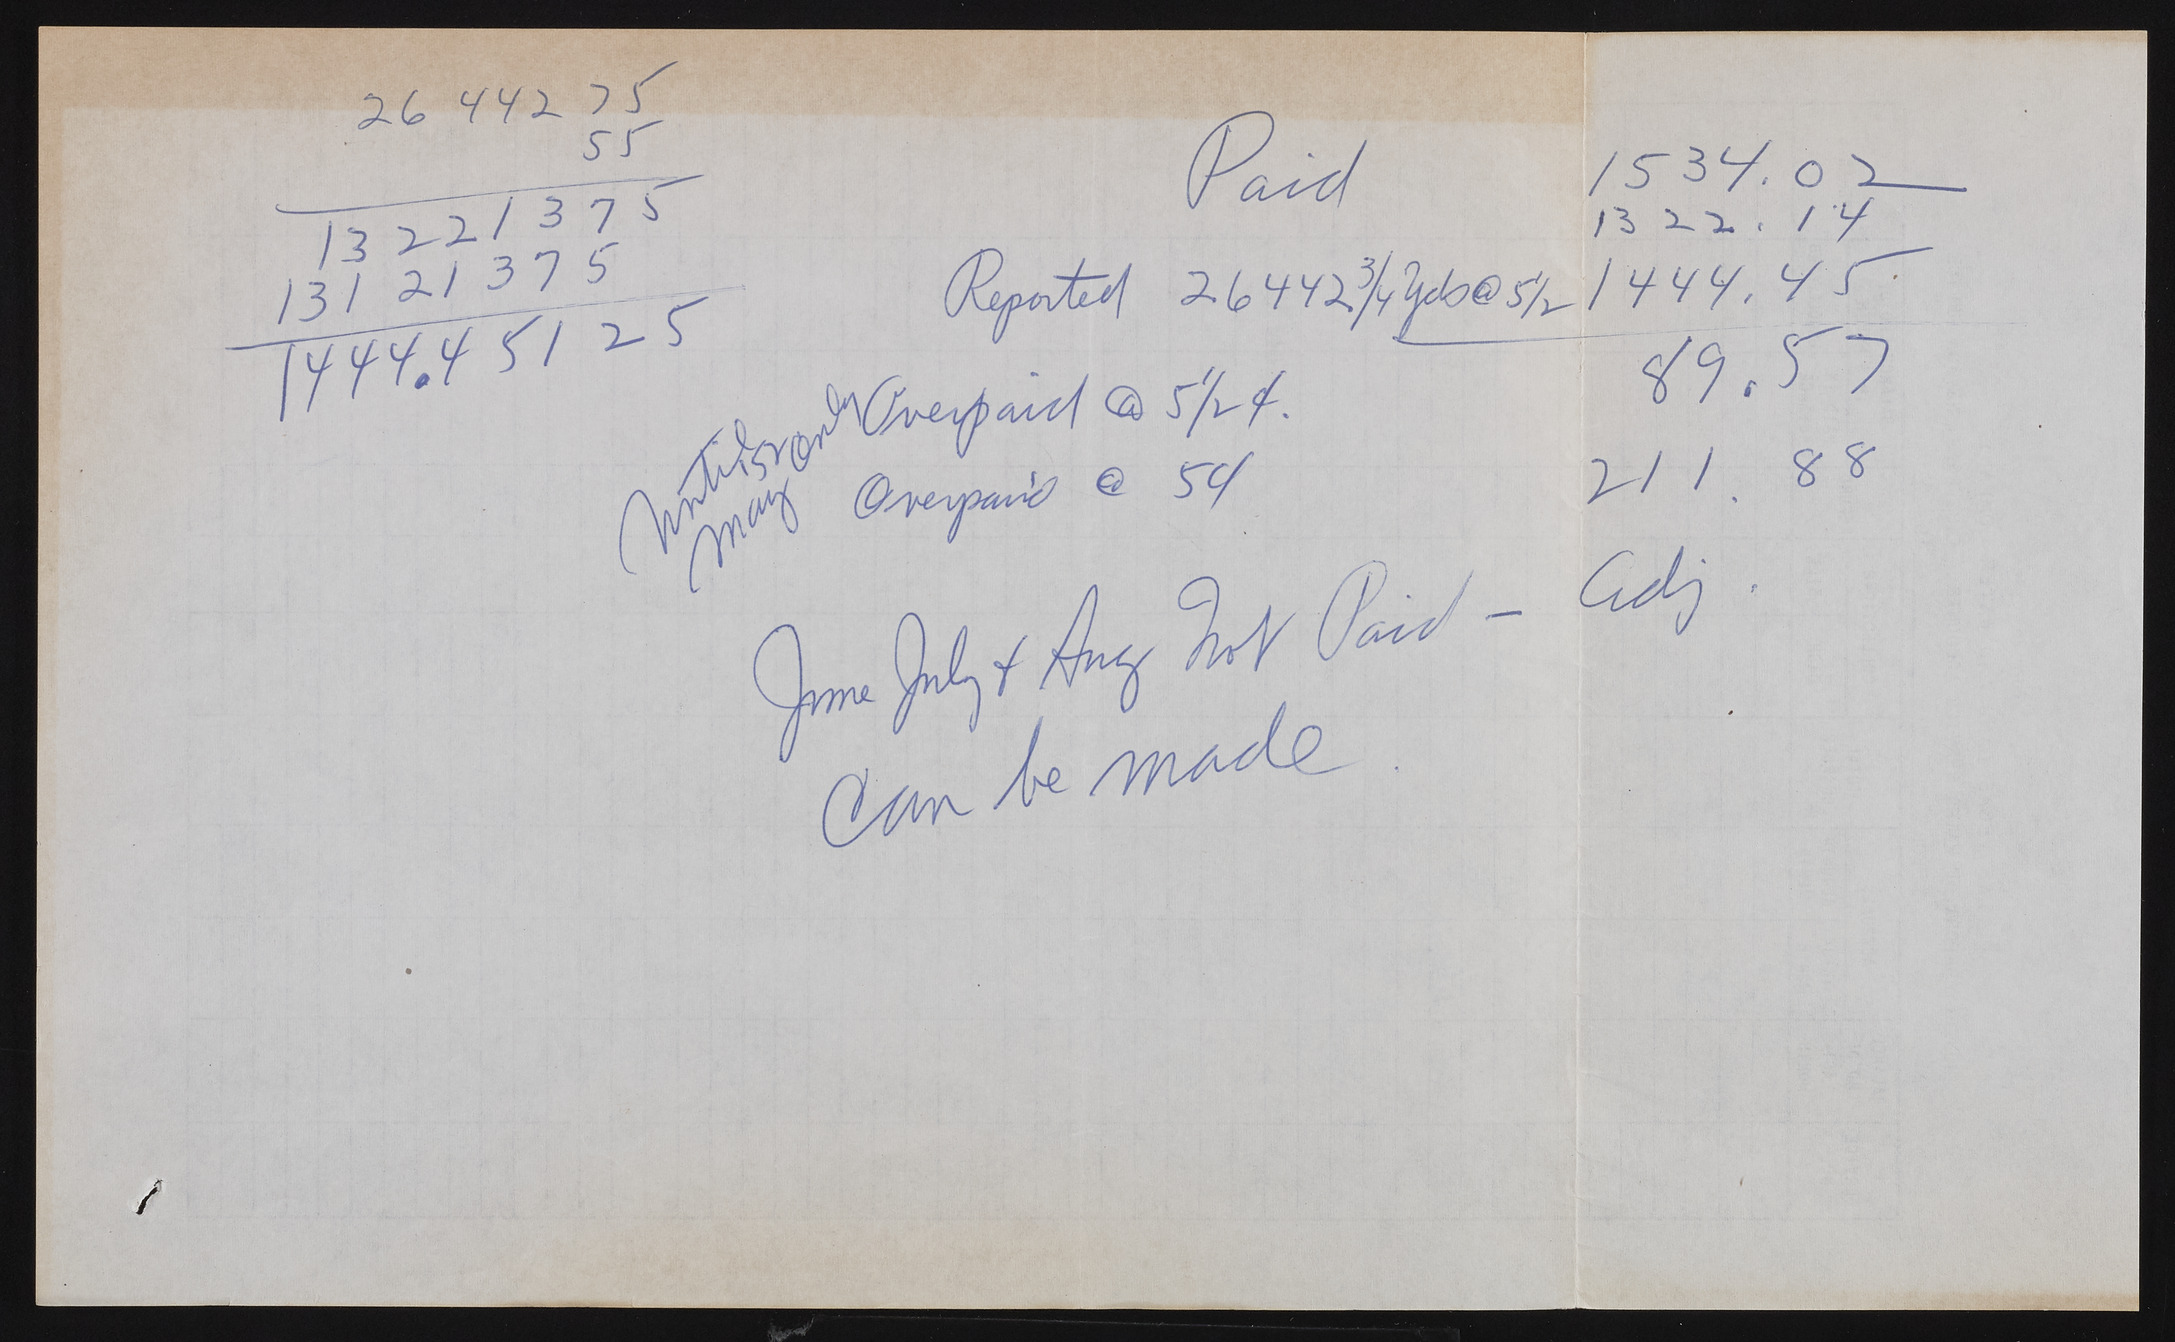 26 442 75
55
13 221 375
131 21 375
1444.45125
Paid 1534.02
1322.14
Reported 26442 3/4 Yds @ 5 1/2 1444.45
89.57
Overpaid @ 5 1/2 ¢.
Overpaid @ 5¢ 211.88
May only
June July & Aug Not Paid - Adj.
Can be made.